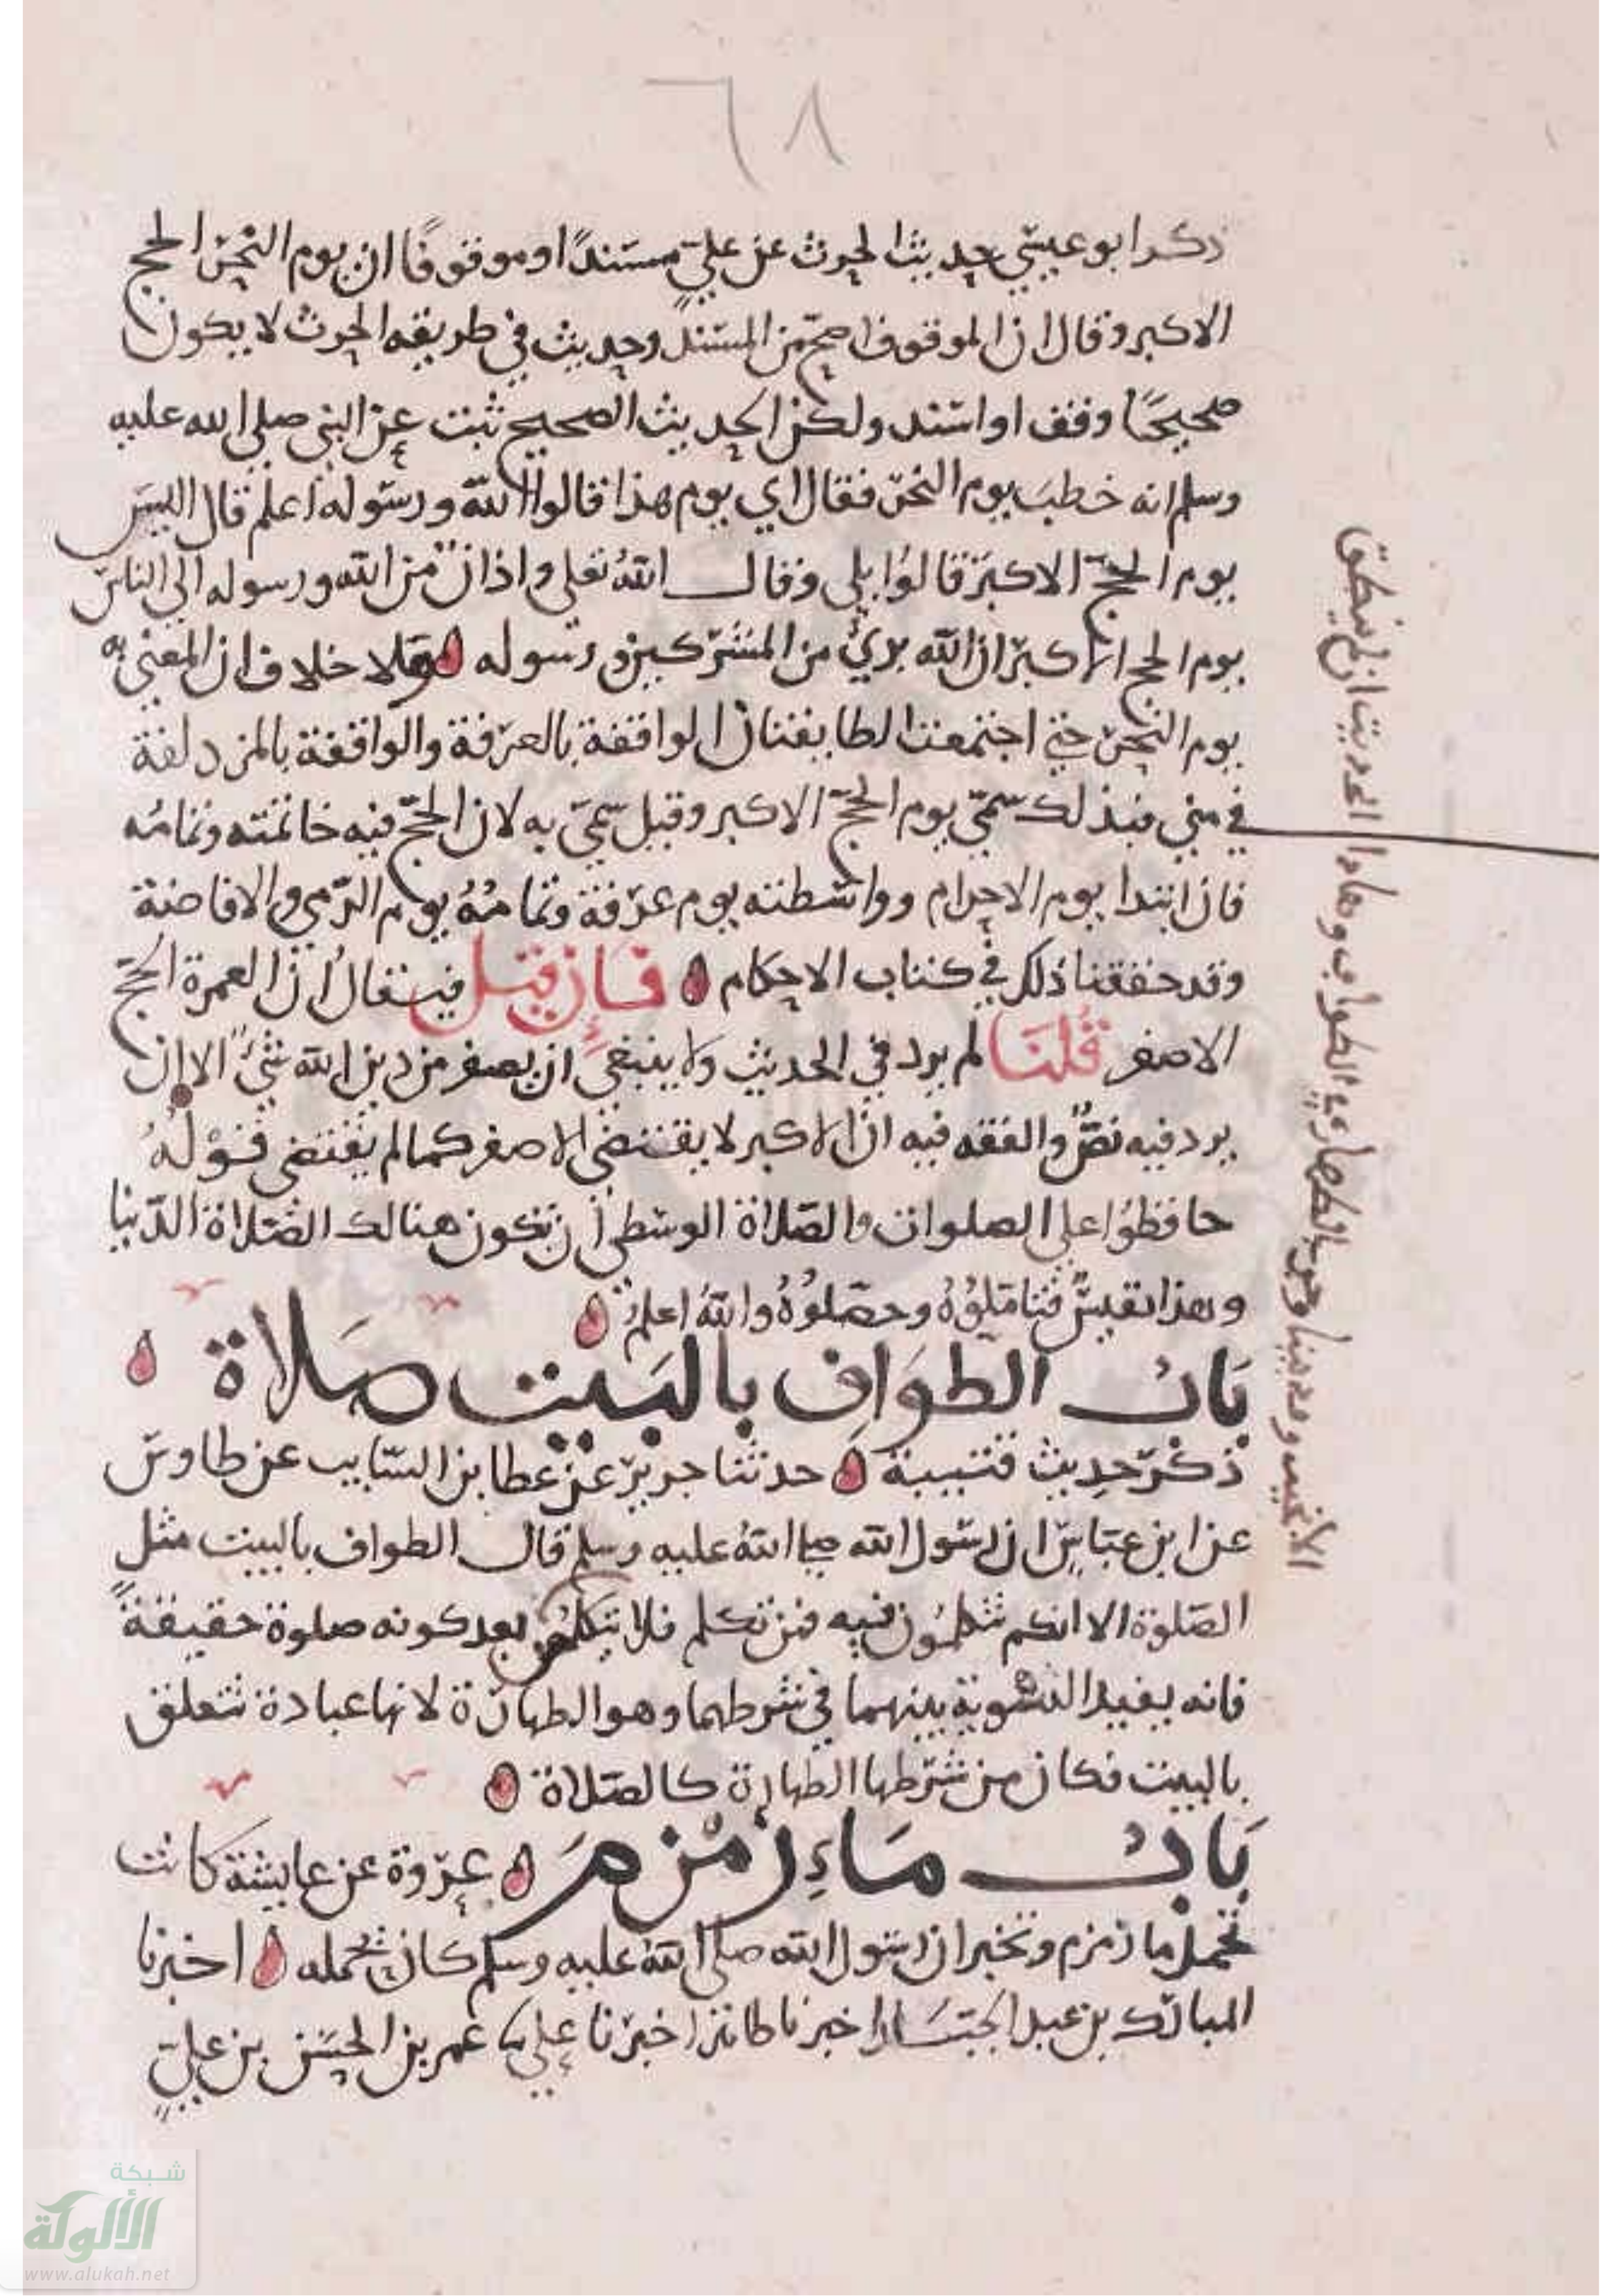 ٦٨
ذكر ابو عيسي حديث الحرث عن علي مسندًا او موقوفًا ان يوم النحر الحج
الاكبر وقال ان الموقوف اصح من المسند وحديث في طريقه الحرث لا يكون
صحيحًا وقف او اسند ولكن الحديث الصحيح ثبت عن النبي صلي الله عليه
وسلم انه خطب يوم النحر فقال اي يوم هذا قالوا الله ورسوله اعلم قال اليس
يوم الحج الاكبر قالوا بلي وقال الله تعلي واذان من الله ورسوله الي الناس
يوم الحج الاكبر ان الله بريء من المشركين ورسوله ولا خلاف ان المعني به
يوم النحر حتي اجتمعت الطايفتان الواقفة بالعرفة والواقفة بالمزدلفة
في مني فبذلك سمي يوم الحج الاكبر وقيل سمي به لان الحج فيه خاتمته وتمامُه
فان ابتدا يوم الاحرام وواسطته يوم عرفة وتمامُهُ يوم الرمي والافاضة
وقد حققنا ذلك في كتاب الاحكام فإن قيل فيقال ان العمرة الحج
الاصغر قُلنَا لم يرد في الحديث ولا ينبغي ان يصغر من دين الله شيءٌ الا ان
يرد فيه نصٌّ والفقه فيه ان الاكبر لا يقتضي الاصغر كما لم يقتضي قوْلُهُ
حافظوُا علي الصلوات والصلاة الوسطي أن تكون هنالك الصلاة الدنيا
وهذا نفيسٌ فتاملوُهُ وحصّلوُهُ والله اعلم
بَابُ الطوَافِ بالبَيت صَلاة
ذكر حديث قتيبة حدثنا جرير عن عطا بن السايب عن طاوس
عن ابن عباس ان رسول الله صلي الله عليه وسلم قال الطواف بالبيت مثل
الصلوة الا انكم تتكلمون فيه فمن تكلم فلا بعد كونه صلوة حقيقةً
فانه يفيد التسوية بينهما في شرطهما وهو الطهارة لانها عبادة تتعلق
بالبيت فكان من شرطها الطهارة كالصلاة
بَابُ مَاءِ زمْزمَ عروة عن عايشة كانت
تحمل ما زمزم وتخبر ان رسول الله صلي الله عليه وسلم كان يحمله اخبرنا
المبارك بن عبد الجبار اخبرنا اخبرنا علي عمر بن الحسن بن علي
شبكة
الألوكة
www.alukah.net